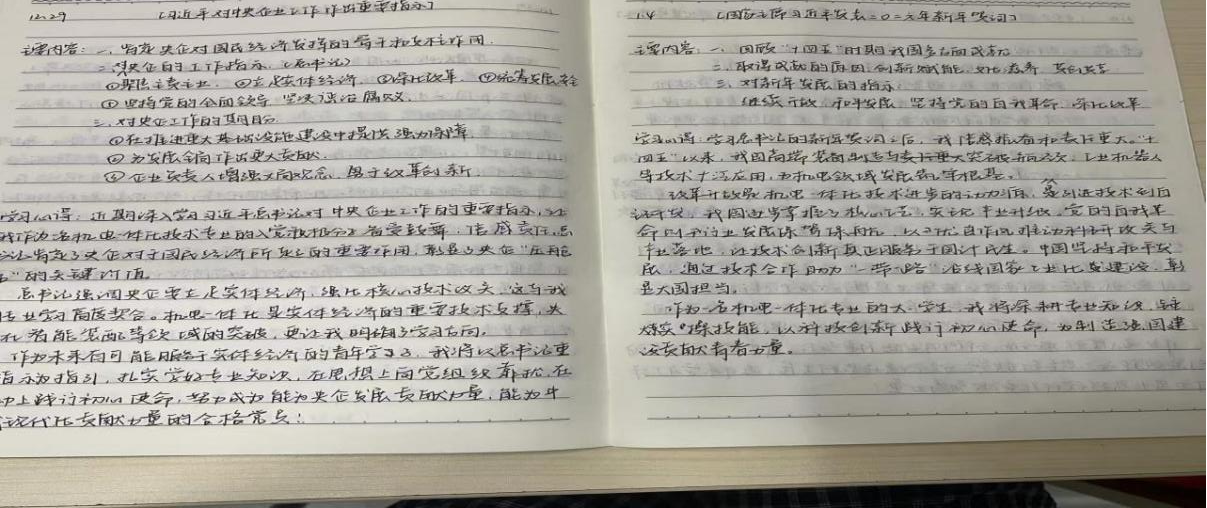 12.29 《习近平对中央企业工作作出重要指示》
主要内容：一、肯定央企对国民经济发挥的骨干和支柱作用
二、对央企的工作指示（总书记）
①聚焦主责主业 ②立足实体经济 ③深化改革 ④统筹发展安全
⑤坚持党的全面领导 坚决惩治腐败
三、对央企工作的期盼
①在推进重大基础设施建设中提供强力保障
②为发展全局作出更大贡献
③企业负责人增强大局观念 勇于改革创新
学习心得：近期深入学习习近平总书记对中央企业工作的重要指示，
我作为名机电一体化技术专业的入党积极分子备受鼓舞，倍感责任，总
书记肯定了央企对于国民经济所处的重要作用，彰显了央企“压舱
石”的关键价值。
总书记强调央企要立足实体经济，强化核心技术攻关，这与我
专业学习高度契合。机电一体化是实体经济的重要技术支撑，
在智能装配等领域的突破，更让我明确了学习方向。
作为未来有可能服务于实体经济的青年学子，我将以总书记重
指示为指引，扎实学好专业知识，在思想上向党组织靠拢，在
动上践行初心使命，努力成为能为央企发展贡献力量，能为中
现代化贡献力量的合格党员！
1.4 《国家主席习近平发表二〇二六年新年贺词》
主要内容：一、回顾“十四五”时期我国多方面成就
二、取得成就的原因 创新赋能 文化滋养
三、对新年发展的指示
继续开放 和平发展 坚持党的自我革命 深化改革
学习心得：学习总书记的新年贺词之后，我倍感振奋和责任重大。“十
四五”以来，我国高端装备制造与 重大突破 工业机器人
等技术广泛应用，为机电领域发展筑牢根基。
改革开放是机电一体化技术进步的动力源，是引进技术到自
主研发，我国逐步掌握了核心工艺，实现产业升级，党的自我革
命则为行业发展保驾保航，以 作风推动科技攻关与
产业落地，让技术创新真正服务于国计民生。中国坚持和平发
展，通过技术合作助力“一带一路”沿线国家工业化建设，彰
显大国担当。
作为一名机电一体化专业的大学生，我将深耕专业知识，
炼实操技能，以科技创新践行初心使命，为制造强国建
设贡献青春力量。